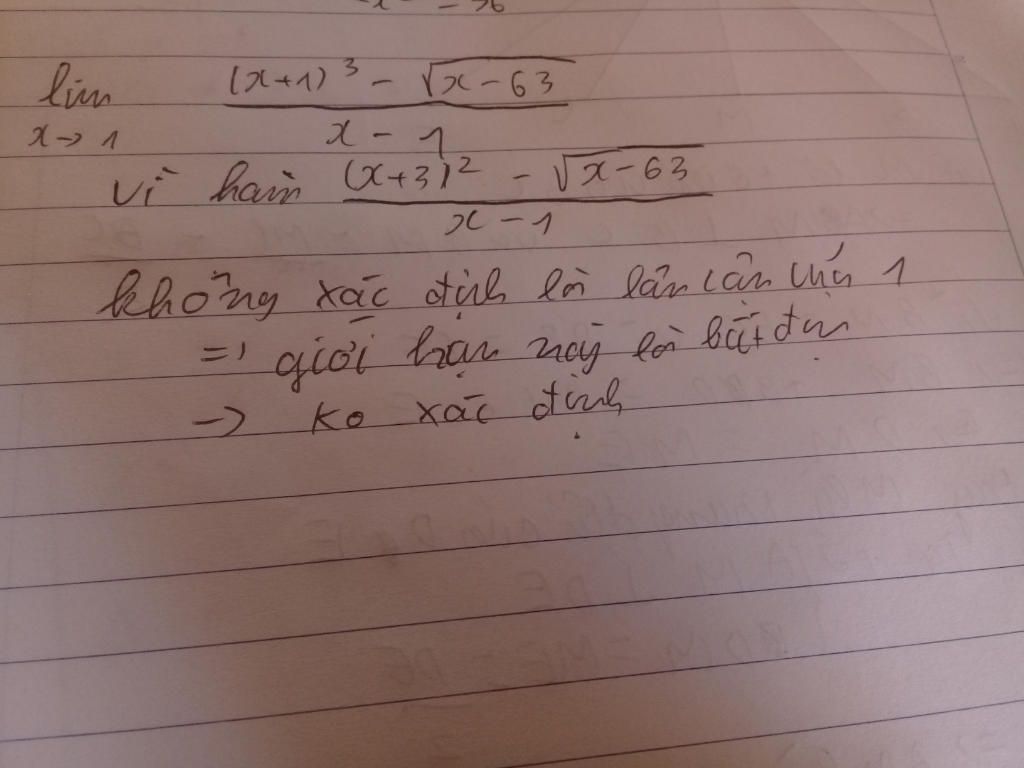 = 36
lim (x+1)³ - √x-63
x→1 x - 1
vì hàm (x+3)² - √x-63
x - 1
không xác định là lân cận của 1
=> giới hạn này là bất định
-> ko xác định